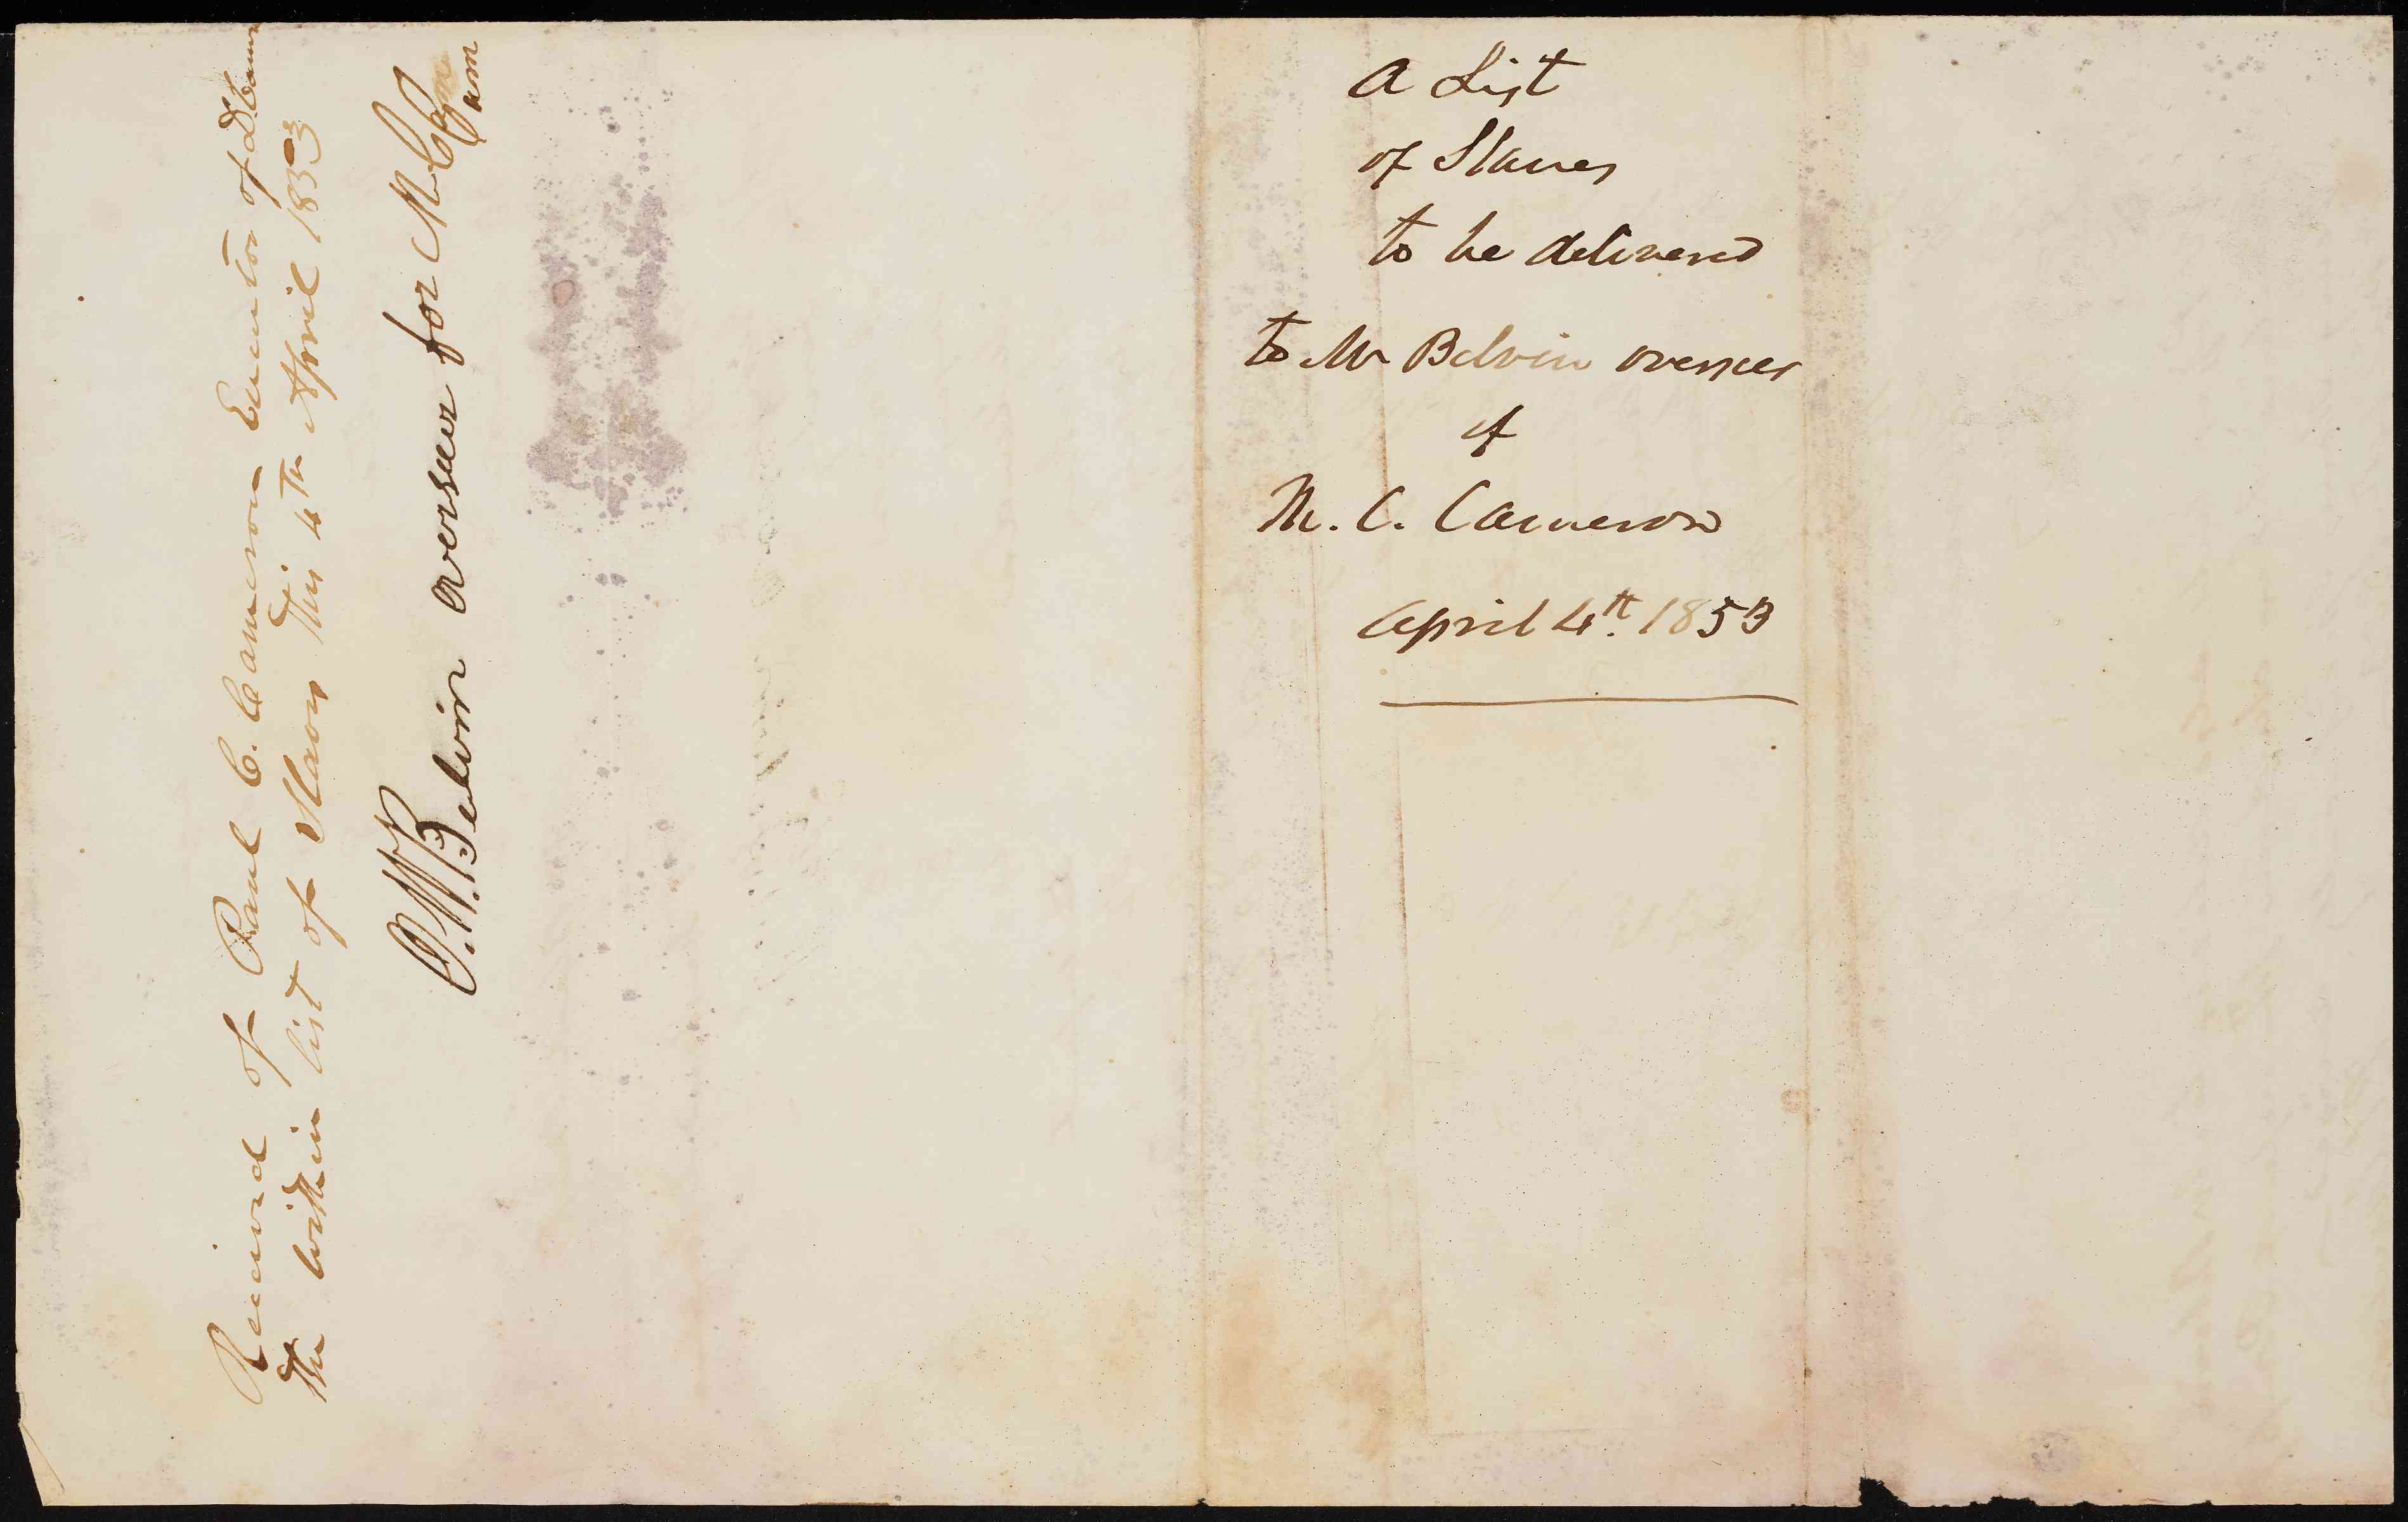 Received of Paul C. Cameron Executor of D. Cam
the within list of Slaves this 4th April 1853
O. W. Belvin overseer for M C Cam
A List
of Slaves
to be delivered
to Mr Belvin overseer
of
M. C. Cameron
April 4th. 1853